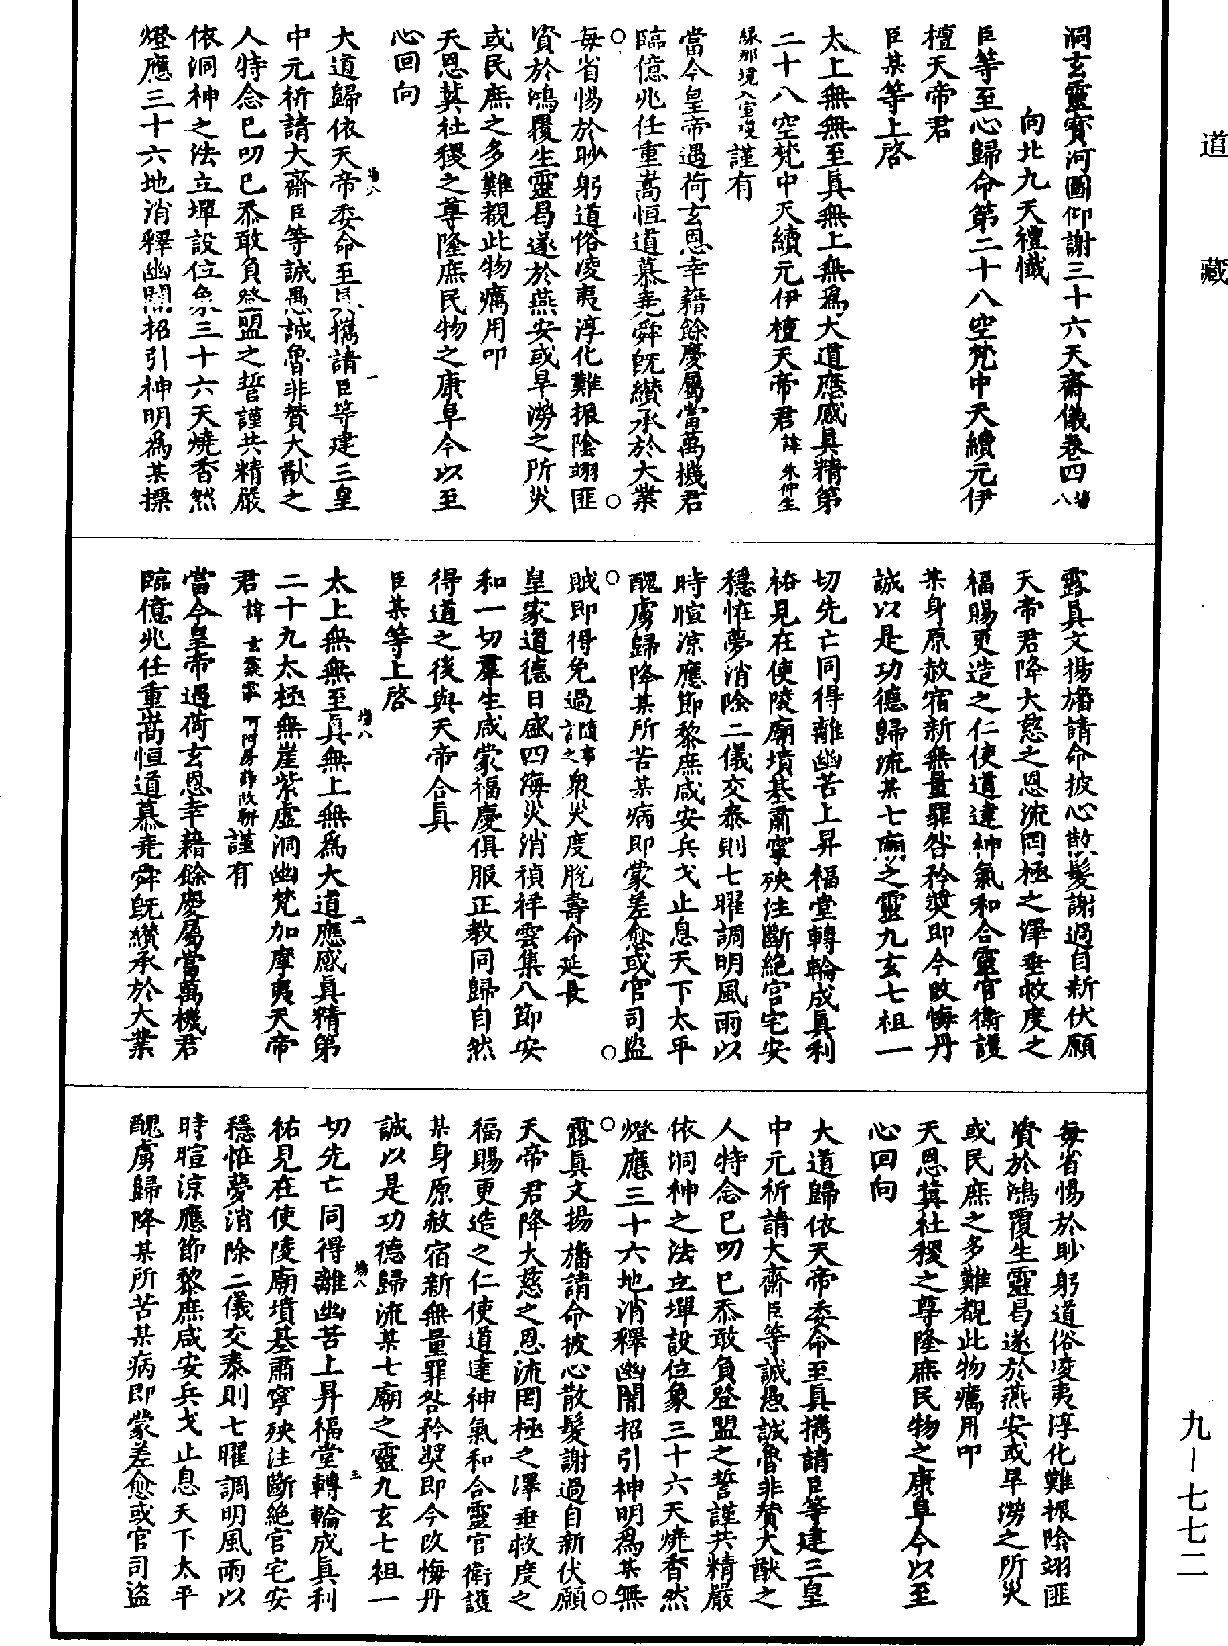 道藏
洞玄靈寶河圖仰謝三十六天齋儀卷四
向北九天禮懺
臣等至心歸命第二十八空梵中天續元伊
檀天帝君
臣某等上啓
太上無無至真無上無爲大道應感真精第
二十八空梵中天續元伊檀天帝君諱
謹有
當今皇帝遇荷玄恩幸藉餘慶屬當萬機君
臨億兆任重嵩恒道慕堯舜旣纘承於大業
每省惕於眇躬道俗凌夷淳化難振陰翊匪
資於鴻覆生靈曷遂於燕安或旱澇之所災
或民庶之多難覩此物癘用叩
天恩蓂社稷之尊隆庶民物之康阜今以至
心回向
大道歸依天帝委命至真攜請臣等建三皇
中元祈請大齋臣等誠愚誠魯非贊大猷之
人特念已叨已忝敢負登盟之誓謹共精嚴
依洞神之法立墠設位象三十六天燒香然
燈應三十六地消釋幽關招引神明爲某標
露真文揚旛請命披心散髮謝過自新伏願
天帝君降大慈之恩流罔極之澤垂救度之
福賜更造之仁使道達神氣和合靈官衛護
某身原赦宿新無量罪咎矜奬即今改悔丹
誠以是功德歸流某七廟之靈九玄七祖一
切先亡同得離幽苦上昇福堂轉輪成真利
祐見在使陵廟墳墓肅寧殃注斷絕宮宅安
穩恠夢消除二儀交泰則七曜調明風雨以
時暄涼應節黎庶咸安兵戈止息天下太平
醜虜歸降某所苦某病即蒙差愈或官司盜
賊即得免過隨事言之衆災度脫壽命延長
皇家道德日盛四海災消禎祥雲集八節安
和一切羣生咸蒙福慶俱服正教同歸自然
得道之後與天帝合真
臣某等上啓
太上無無至真無上無爲大道應感真精第
二十九太極無崖紫虛洞幽梵加摩夷天帝
君諱謹有
當今皇帝遇荷玄恩幸藉餘慶屬當萬機君
臨億兆任重嵩恒道慕堯舜旣纘承於大業
每省惕於眇躬道俗凌夷淳化難振陰翊匪
資於鴻覆生靈曷遂於燕安或旱澇之所災
或民庶之多難覩此物癘用叩
天恩蓂社稷之尊隆庶民物之康阜今以至
心回向
大道歸依天帝委命至真攜請臣等建三皇
中元祈請大齋臣等誠愚誠魯非贊大猷之
人特念已叨已忝敢負登盟之誓謹共精嚴
依洞神之法立墠設位象三十六天燒香然
燈應三十六地消釋幽關招引神明爲某無
露真文揚旛請命披心散髮謝過自新伏願
天帝君降大慈之恩流罔極之澤垂救度之
福賜更造之仁使道達神氣和合靈官衛護
某身原赦宿新無量罪咎矜奬即今改悔丹
誠以是功德歸流某七廟之靈九玄七祖一
切先亡同得離幽苦上昇福堂轉輪成真利
祐見在使陵廟墳墓肅寧殃注斷絕官宅安
穩恠夢消除二儀交泰則七曜調明風雨以
時暄涼應節黎庶咸安兵戈止息天下太平
醜虜歸降某所苦某病即蒙差愈或官司盜
九—七七二